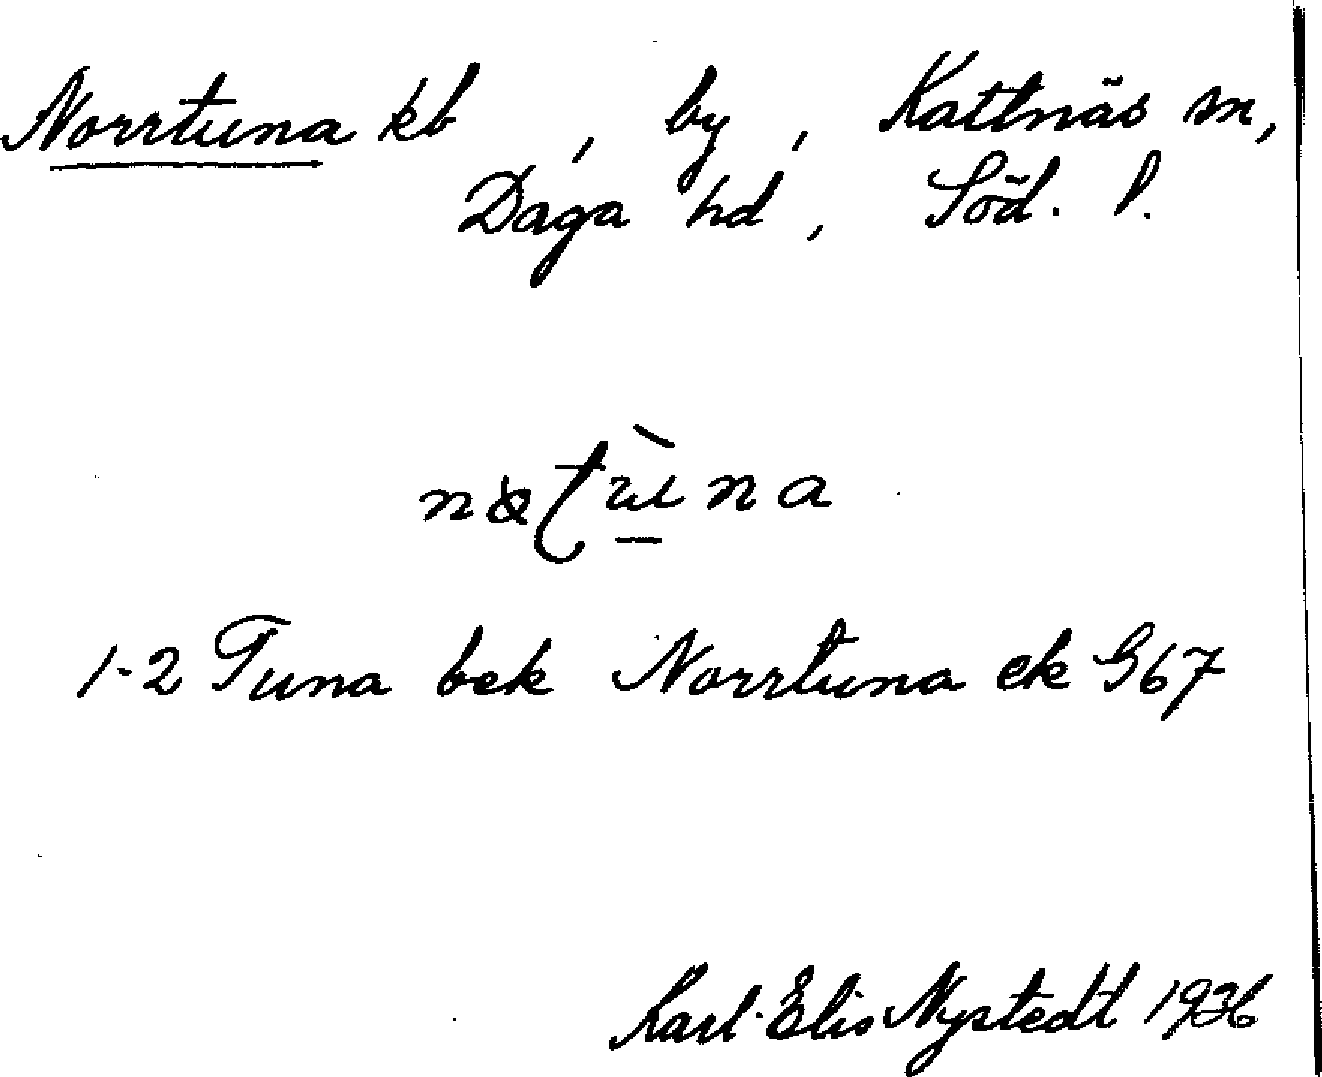 Norrtuna kb , by , Kattnäs sn,
Daga hd , Söd. l.
1-2 Tuna bek Norrtuna ek G67
Karl-Elis Nystedt 1936